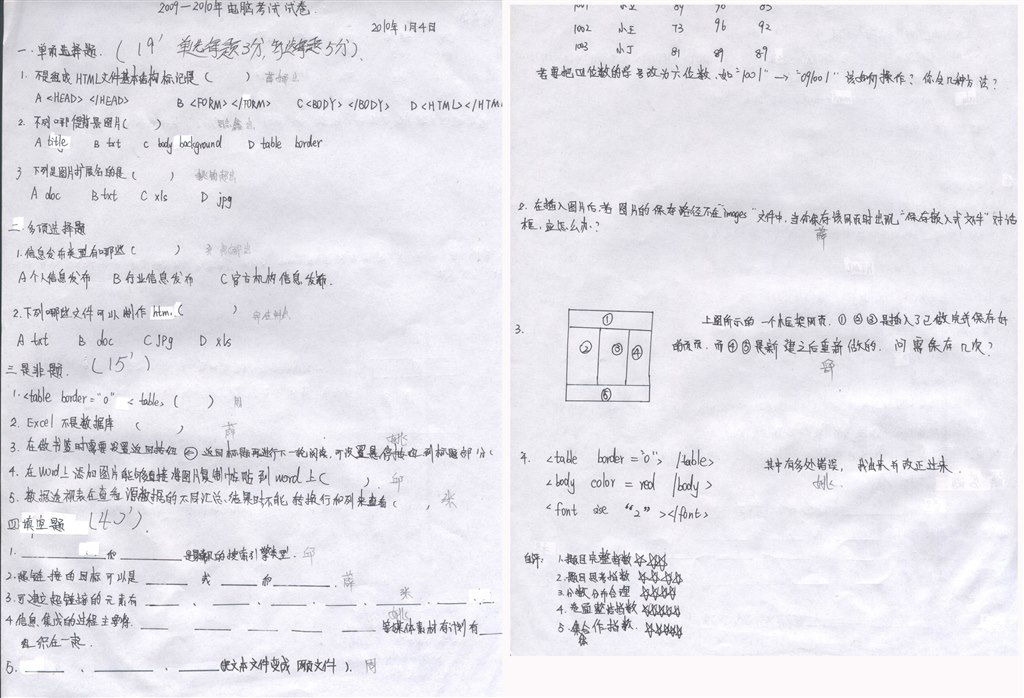 2009—2010年电脑考试试卷.
2010年1月4日
一.单项选择题. (19' 单选每题3分,多选每题5分)
1. 不是组成HTML文件基本结构标记是 ( )
A <HEAD> </HEAD> B <FORM> </FORM> C <BODY> </BODY> D <HTML> </HTM
2. 下列哪 背景图片( )
A title B txt C body background D table border
3 下列是图片扩展名的是 ( )
A doc B txt C xls D jpg
二.多项选择题
1.信息发布类型有哪些( )
A个人信息发布 B行业信息发布 C官方机构信息发布.
2.下列哪些文件可以制作htm.( )
A txt B doc C JPg D xls
三.是非题. (15')
1.<table border="0" < table> ( ) 周
2. Excel 不是数据库 ( ) 薛
3. 在做书签时需要设置返回按钮 返回标题再进行下一轮阅读,可 到标题部分(
4. 在word上添加图片能够直接将图片复制粘贴到word上( ). 邱
5. 数据透视表在查看源数据的不同汇总结果时不能转换行和列来查看( , 朱
四.填空题 (40')
1. 和 是 的搜索引擎类型. 邱
2.超链接的目标可以是 或 和 . 薛
3.可建立超链接的元素有 、 、 、 、 、 . 朱
4.信息集成的过程主要将 、 、 等媒体素材有计划有
组织在一起.
5. 、 、 (使文本文件变成网页文件). 周
1001 小王 89 90 85
1002 小王 73 96 92
1003 小丁 81 89 89
若要把四位数的学号改为六位数.如"1001"→"091001" 该如何操作? 你会几种方法?
2. 在插入图片后,若图片的保存路径不在"images"文件中,当你保存该网页时出现"保存嵌入式文件"对话
框,应怎么办? 薛
3.
①
② ③ ④
⑤
上图所示的一个框架网页. ① ② ③是插入了已做完并保存好
的网页. 而④⑤是新建之后重新做的. 问需保存几次?
邱
4. <table border="0"> /table>
<body color = red /body>
<font size "2" ></font>
其中有多处错误, 找出来并改正过来.
自评: 1.题目完整指数 ☆☆☆☆
2.题目思考指数 ☆☆☆☆
3.分数分布合理 ☆☆☆☆
4.卷面整洁指数 ☆☆☆☆
5. 合作指数. ☆☆☆☆☆